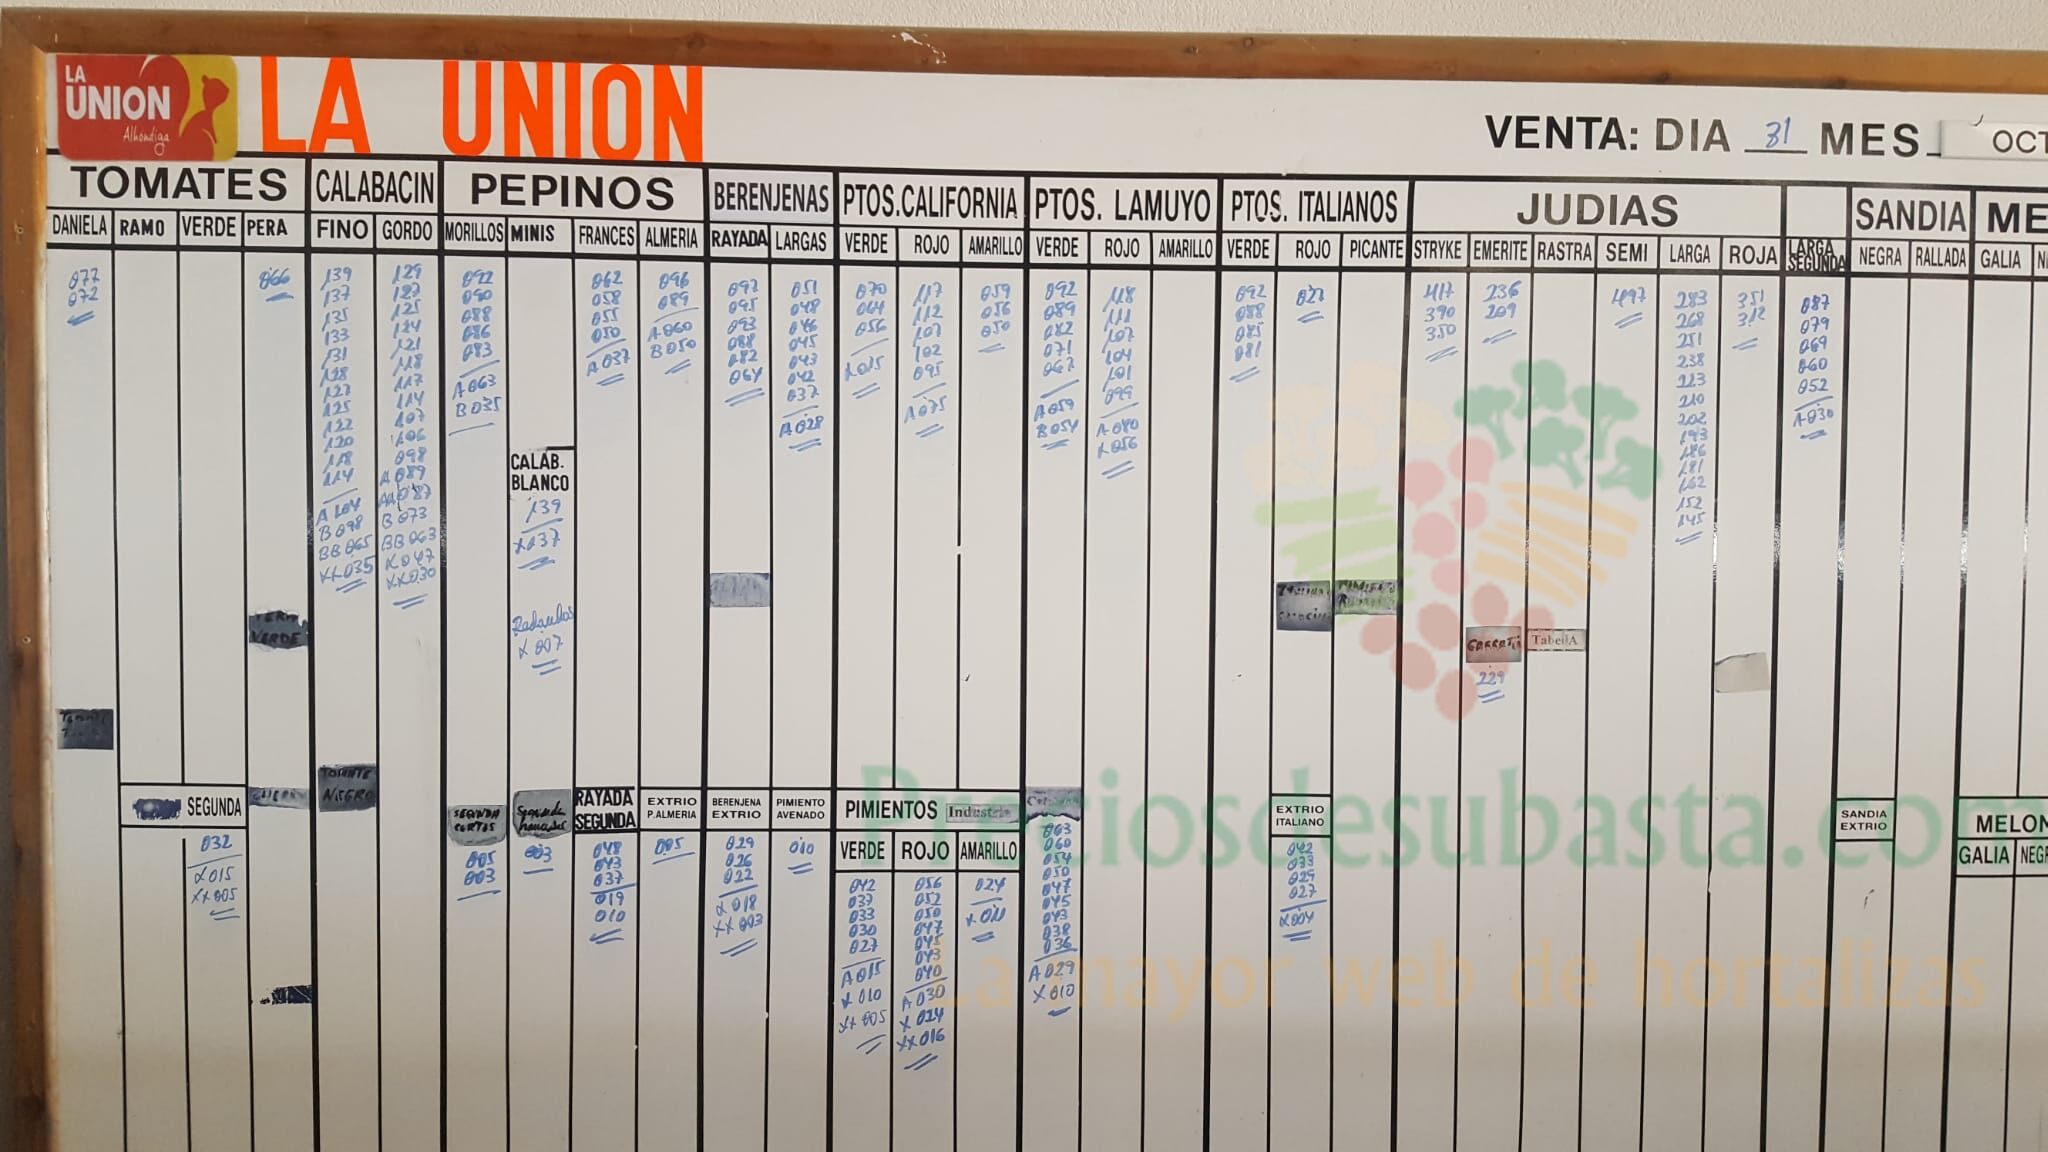 LA
UNION
Alhondiga
LA UNION
VENTA: DIA 31 MES OCT
TOMATES
CALABACIN
PEPINOS
BERENJENAS
PTOS.CALIFORNIA
PTOS. LAMUYO
PTOS. ITALIANOS
JUDIAS
SANDIA
ME
DANIELA RAMO VERDE PERA FINO GORDO MORILLOS MINIS FRANCES ALMERIA RAYADA LARGAS VERDE ROJO AMARILLO VERDE ROJO AMARILLO VERDE ROJO PICANTE STRYKE EMERITE RASTRA SEMI LARGA ROJA LARGA SEGUNDA NEGRA RALLADA GALIA
077
072
066
139
137
135
133
131
128
127
125
122
120
118
114
A 104
B 098
BB 065
XX035
129
127
125
124
121
118
117
114
107
106
098
A 089
AA 087
B 073
BB 063
X 047
XX030
092
090
088
086
083
A 063
B 035
CALAB.
BLANCO
139
X037
Redondos
X 007
062
058
055
050
A 037
096
089
A 060
B 050
097
095
093
088
082
064
051
048
046
045
043
042
037
A 028
070
064
056
X 015
117
112
107
102
095
A 075
059
056
050
092
089
082
071
067
A 059
B 054
118
111
107
104
101
099
A 080
X 056
092
088
085
081
027
417
390
350
236
209
497
283
268
251
238
223
210
202
193
186
181
162
152
145
351
312
087
079
069
060
052
A 030
VERDE
TabellA
229
TOMATE
NEGRO
SEGUNDA
032
X 015
XX 005
SEGUNDA
CORTOS
005
003
Segunda
003
RAYADA
SEGUNDA
048
043
037
019
010
EXTRIO
P.ALMERIA
005
BERENJENA
EXTRIO
029
026
022
X 018
XX 003
PIMIENTO
AVENADO
010
PIMIENTOS Industria
VERDE ROJO AMARILLO
042
037
033
030
027
A 015
X 010
XX 005
056
052
050
047
045
043
040
A 030
X 024
XX016
024
X 011
063
060
054
050
047
045
043
038
036
A 029
X 010
EXTRIO
ITALIANO
042
033
029
027
X 004
SANDIA
EXTRIO
MELON
GALIA NEGR
Preciosdesubasta.com
La mayor web de hortalizas